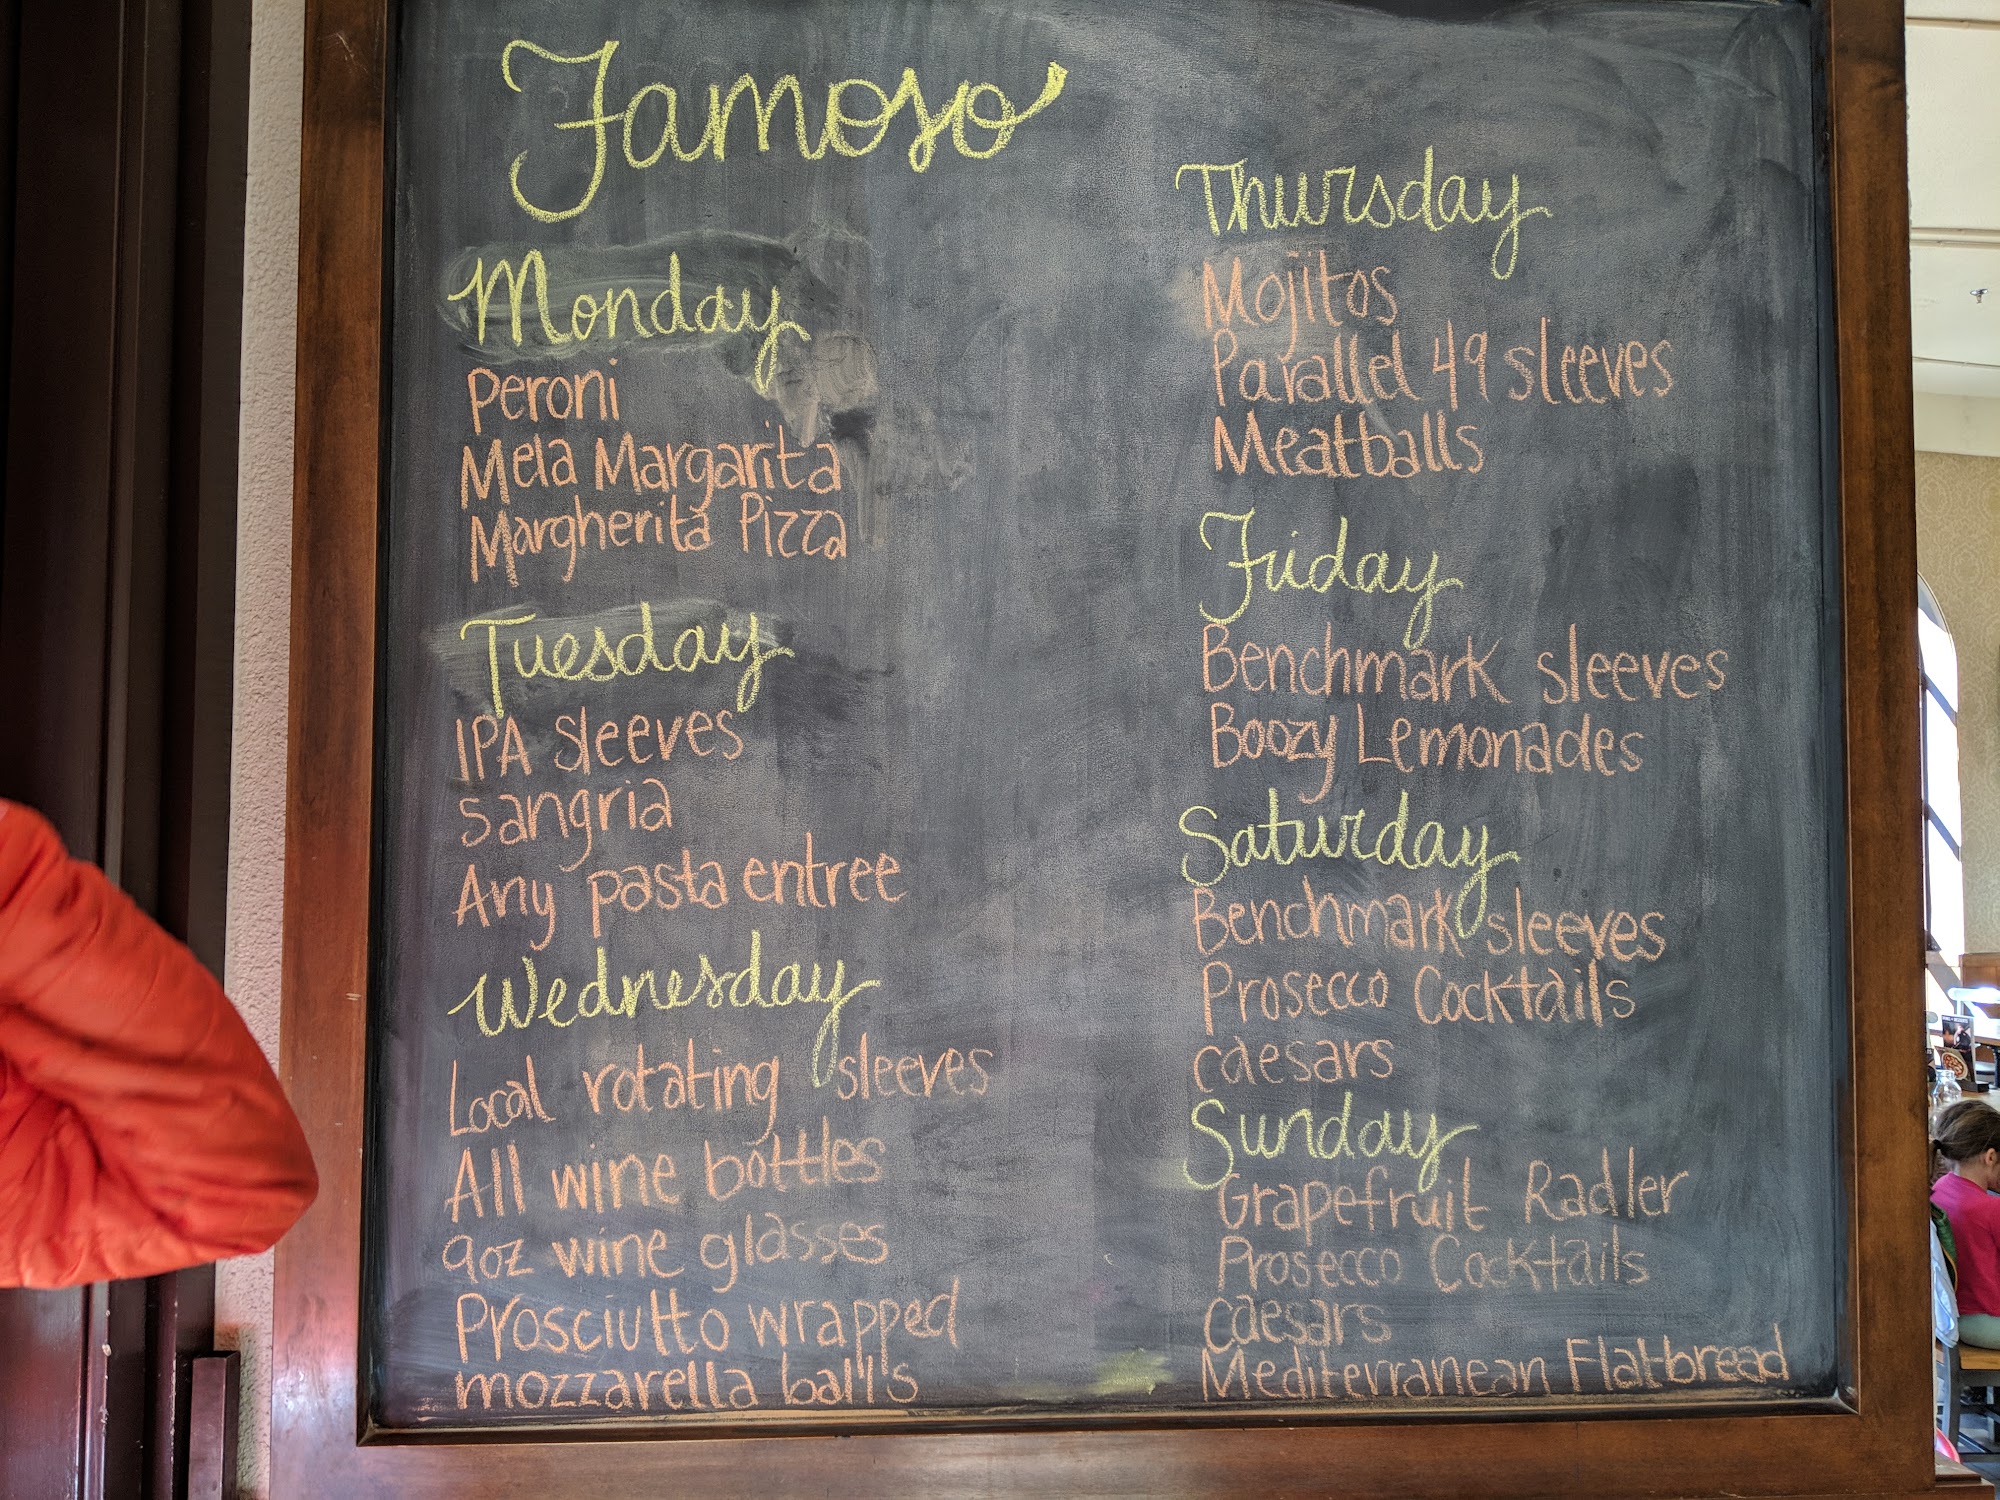 Famoso
Monday
Peroni
Mela Margarita
Margherita Pizza
Tuesday
IPA sleeves
Sangria
Any pasta entree
Wednesday
Local rotating sleeves
All wine bottles
9oz wine glasses
Prosciutto wrapped
mozzarella balls
Thursday
Mojitos
Parallel 49 sleeves
Meatballs
Friday
Benchmark sleeves
Boozy Lemonades
Saturday
Benchmark sleeves
Prosecco Cocktails
caesars
Sunday
Grapefruit Radler
Prosecco Cocktails
caesars
Mediterranean Flatbread